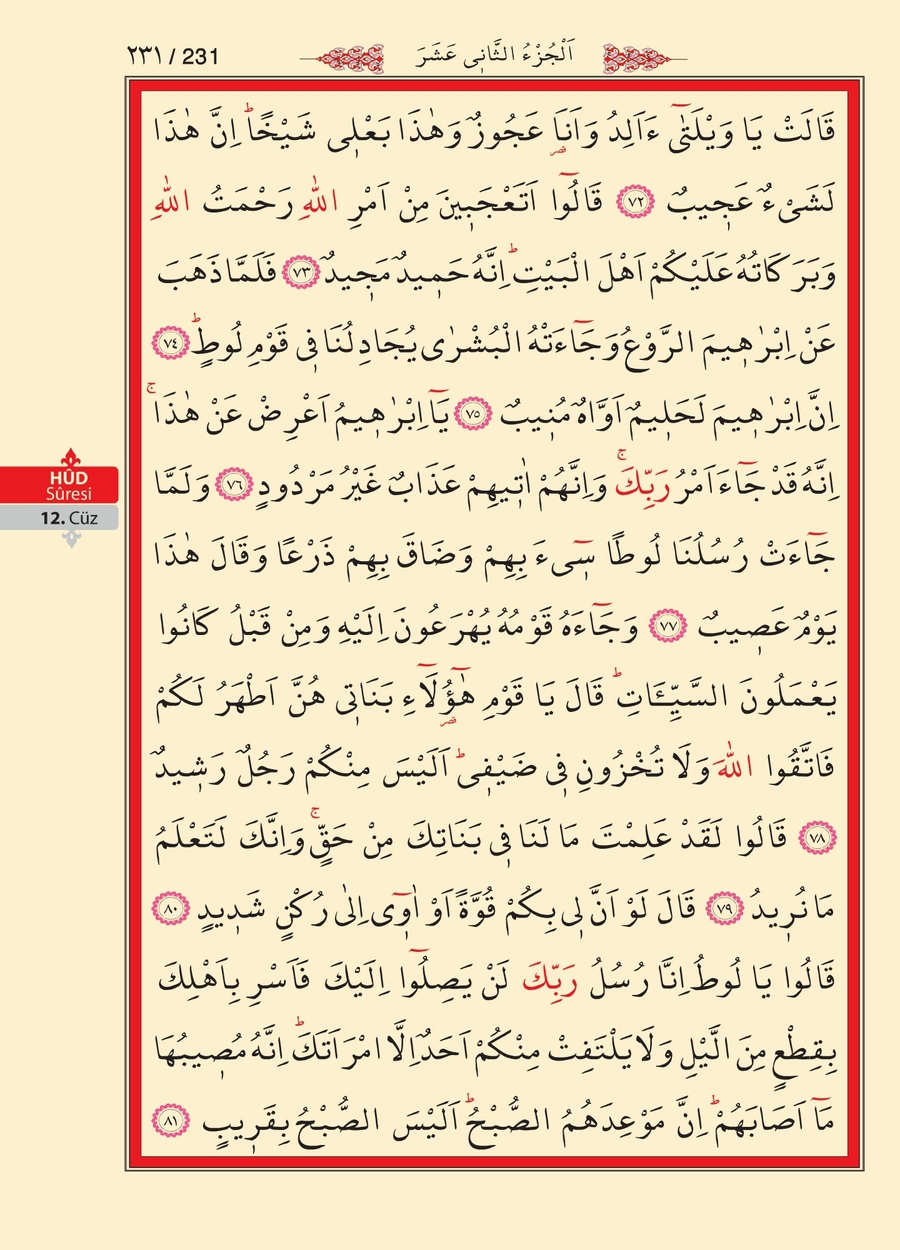 ٢٣١ / 231
اَلْجُزْءُ الثَّانٖى عَشَرَ
قَالَتْ يَا وَيْلَتٰٓى ءَاَلِدُ وَاَنَا۬ عَجُوزٌ وَهٰذَا بَعْلٖى شَيْخًاؕ اِنَّ هٰذَا
قصر
لَشَیْءٌ عَجٖيبٌ ﴿٧٢﴾ قَالُٓوا اَتَعْجَبٖينَ مِنْ اَمْرِ اللّٰهِ رَحْمَتُ اللّٰهِ
وَبَرَكَاتُهُ عَلَيْكُمْ اَهْلَ الْبَيْتِؕ اِنَّهُ حَمٖيدٌ مَجٖيدٌ ﴿٧٣﴾ فَلَمَّا ذَهَبَ
عَنْ اِبْرٰهٖيمَ الرَّوْعُ وَجَٓاءَتْهُ الْبُشْرٰى يُجَادِلُنَا فٖى قَوْمِ لُوطٍؕ ﴿٧٤﴾
اِنَّ اِبْرٰهٖيمَ لَحَلٖيمٌ اَوَّاهٌ مُنٖيبٌ ﴿٧٥﴾ يَٓا اِبْرٰهٖيمُ اَعْرِضْ عَنْ هٰذَاۚ
اِنَّهُ قَدْ جَٓاءَ اَمْرُ رَبِّكَۚ وَاِنَّهُمْ اٰتٖيهِمْ عَذَابٌ غَيْرُ مَرْدُودٍ ﴿٧٦﴾ وَلَمَّا
جَٓاءَتْ رُسُلُنَا لُوطًا سٖٓىءَ بِهِمْ وَضَاقَ بِهِمْ ذَرْعًا وَقَالَ هٰذَا
يَوْمٌ عَصٖيبٌ ﴿٧٧﴾ وَجَٓاءَهُ قَوْمُهُ يُهْرَعُونَ اِلَيْهِ وَمِنْ قَبْلُ كَانُوا
يَعْمَلُونَ السَّيِّـَٔاتِؕ قَالَ يَا قَوْمِ هٰٓؤُ۬لَٓاءِ بَنَاتٖى هُنَّ اَطْهَرُ لَكُمْ
قصر
فَاتَّقُوا اللّٰهَ وَلَا تُخْزُونِ فٖى ضَيْفٖىؕ اَلَيْسَ مِنْكُمْ رَجُلٌ رَشٖيدٌ
﴿٧٨﴾ قَالُوا لَقَدْ عَلِمْتَ مَا لَنَا فٖى بَنَاتِكَ مِنْ حَقٍّۚ وَاِنَّكَ لَتَعْلَمُ
مَا نُرٖيدُ ﴿٧٩﴾ قَالَ لَوْ اَنَّ لٖى بِكُمْ قُوَّةً اَوْ اٰوٖٓى اِلٰى رُكْنٍ شَدٖيدٍ ﴿٨٠﴾
قَالُوا يَا لُوطُ اِنَّا رُسُلُ رَبِّكَ لَنْ يَصِلُٓوا اِلَيْكَ فَاَسْرِ بِاَهْلِكَ
بِقِطْعٍ مِنَ الَّيْلِ وَلَا يَلْتَفِتْ مِنْكُمْ اَحَدٌ اِلَّا امْرَاَتَكَؕ اِنَّهُ مُصٖيبُهَا
مَٓا اَصَابَهُمْؕ اِنَّ مَوْعِدَهُمُ الصُّبْحُؕ اَلَيْسَ الصُّبْحُ بِقَرٖيبٍ ﴿٨١﴾
HÛD
Sûresi
12. Cüz